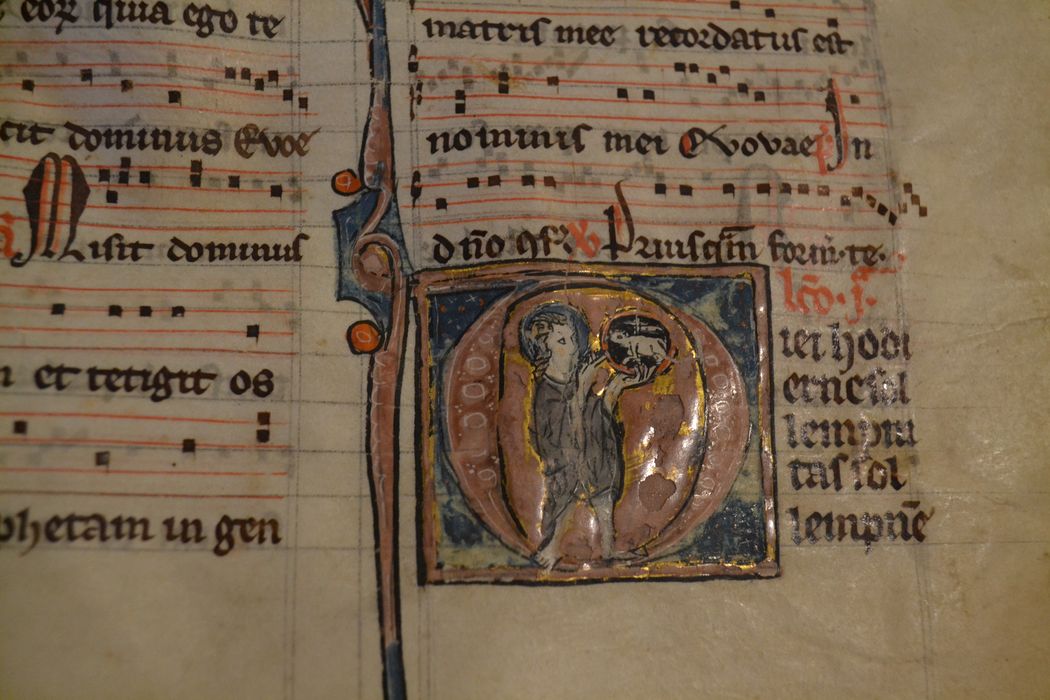 eoꝝ quia ego te
cit dominus Evoe
Misit dominus
et tetigit os
phetam in gen
matris mee recordatus est
nominis mei Evovae In
dño Priusqm form. te.
lco. j.
iei hodi
erne sol
lempni
tas sol